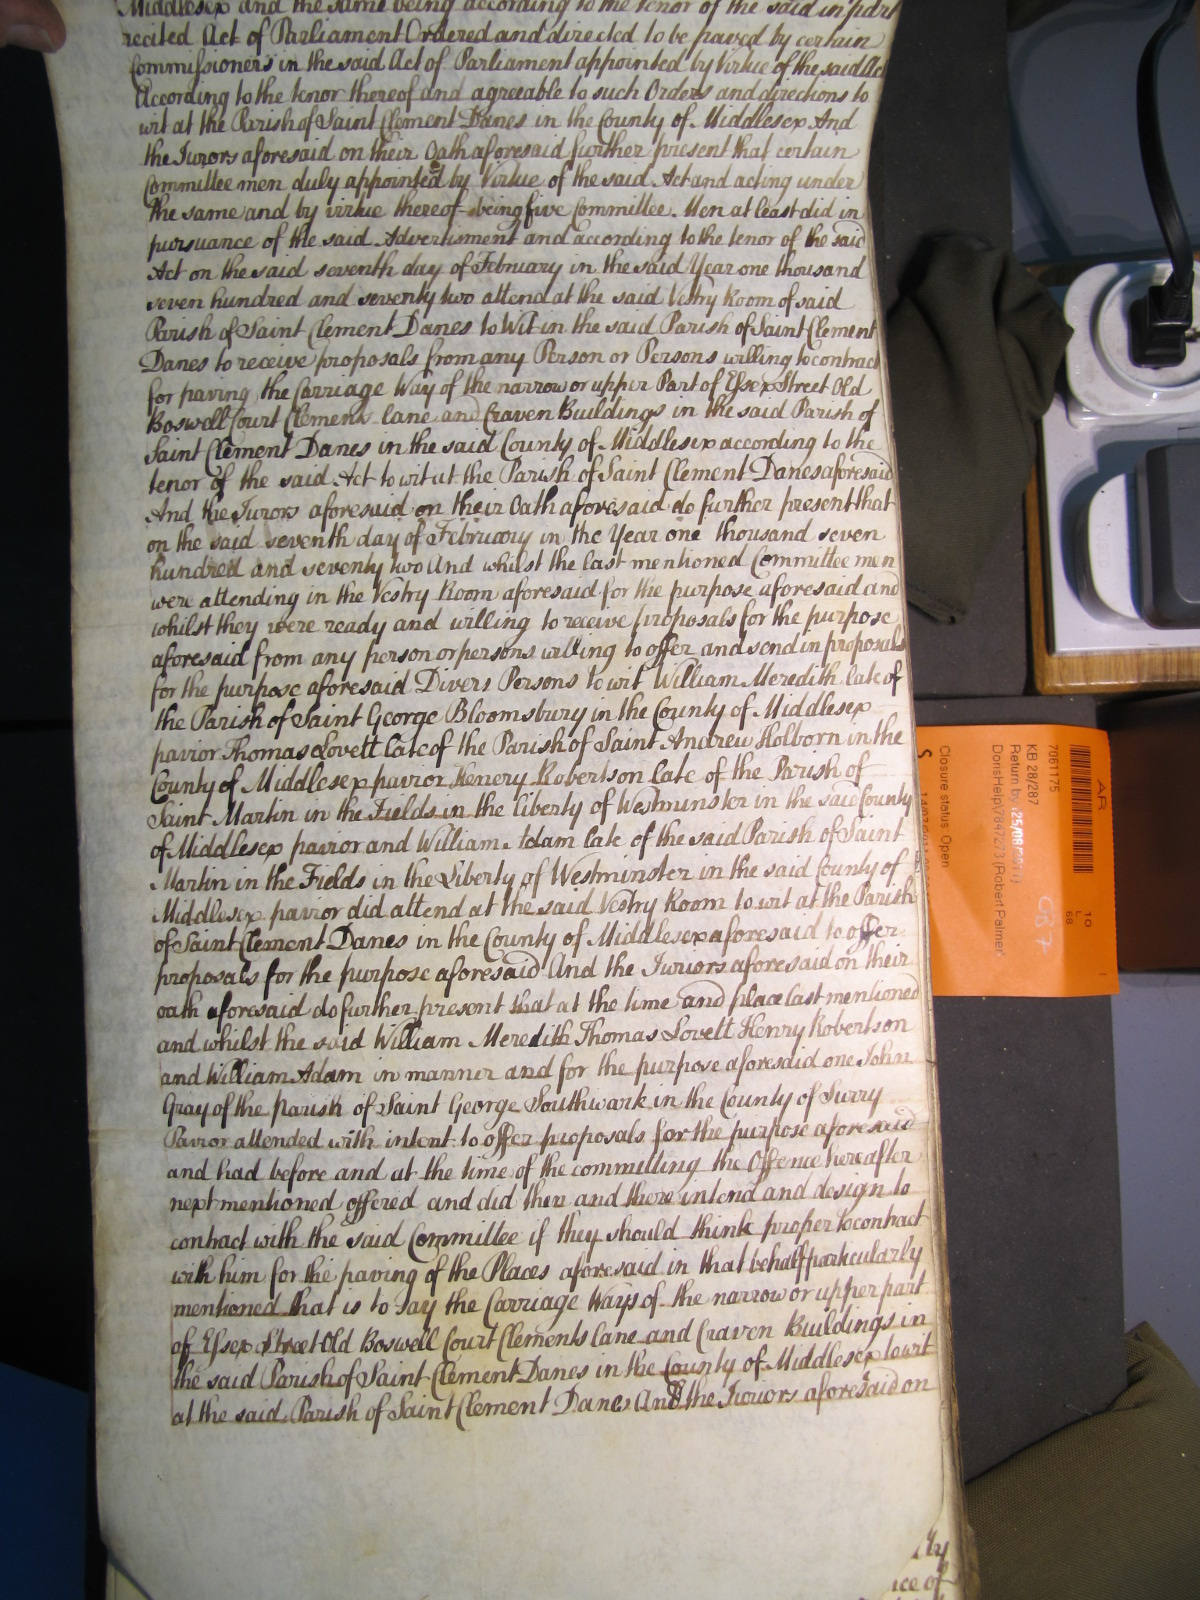 Middlesex and the same being according to the tenor of the said in part
recited Act of Parliament Ordered and directed to be paved by certain
Commissioners in the said Act of Parliament appointed by Virtue of the said Act
According to the tenor thereof and agreeable to such Orders and directions to
wit at the Parish of Saint Clement Danes in the County of Middlesex And
the Jurors aforesaid on their Oath aforesaid further present that certain
Committee men duly appointed by Virtue of the said Act and acting under
the same and by virtue thereof being five Committee Men at least did in
pursuance of the said Advertisment and according to the tenor of the said
Act on the said seventh day of February in the said Year one thousand
seven hundred and seventy two attend at the said Vestry Room of said
Parish of Saint Clement Danes to Wit in the said Parish of Saint Clement
Danes to receive proposals from any Person or Persons willing to contract
for paving the Carriage Way of the narrow or upper Part of Essex Street Old
Boswell Court Clements lane and Craven Buildings in the said Parish of
Saint Clement Danes in the said County of Middlesex according to the
tenor of the said Act to wit at the Parish of Saint Clement Danes aforesaid
And the Jurors aforesaid on their Oath aforesaid do further present that
on the said seventh day of February in the Year one thousand seven
hundred and seventy two And whilst the last mentioned Committee men
were attending in the Vestry Room aforesaid for the purpose aforesaid and
whilst they were ready and willing to receive proposals for the purpose
aforesaid from any person or persons willing to offer and send in proposals
for the purpose aforesaid Divers Persons to wit William Meredith late of
the Parish of Saint George Bloomsbury in the County of Middlesex
pavior Thomas Lovett late of the Parish of Saint Andrew Holborn in the
County of Middlesex pavior Henery Robertson late of the Parish of
Saint Martin in the Fields in the liberty of Westminster in the said County
of Middlesex pavior and William Adam late of the said Parish of Saint
Martin in the Fields in the Liberty of Westminster in the said County of
Middlesex pavior did attend at the said Vestry Room to wit at the Parish
of Saint Clement Danes in the County of Middlesex aforesaid to offer
proposals for the purpose aforesaid And the Juriors aforesaid on their
oath aforesaid do further present that at the time and place last mentioned
and whilst the said William Meredith Thomas Lovett Henry Robertson
and William Adam in manner and for the purpose aforesaid one John
Gray of the parish of Saint George Southwark in the County of Surry
Pavior attended with intent to offer proposals for the purpose aforesaid
and had before and at the time of the committing the Offence hereafter
next mentioned offered and did then and there intend and design to
contract with the said Committee if they should think proper to contract
with him for the paving of the Places aforesaid in that behalf particularly
mentioned that is to say the Carriage Ways of the narrow or upper part
of Essex Street Old Boswell Court Clements lane and Craven Buildings in
the said Parish of Saint Clement Danes in the County of Middlesex to wit
at the said Parish of Saint Clement Danes And the Juriors aforesaid on
ice of
7061175
KB 28/287
Return by (25/08/2011)
DorisHelp\7847273 (Robert Palmer)
Closure status: Open